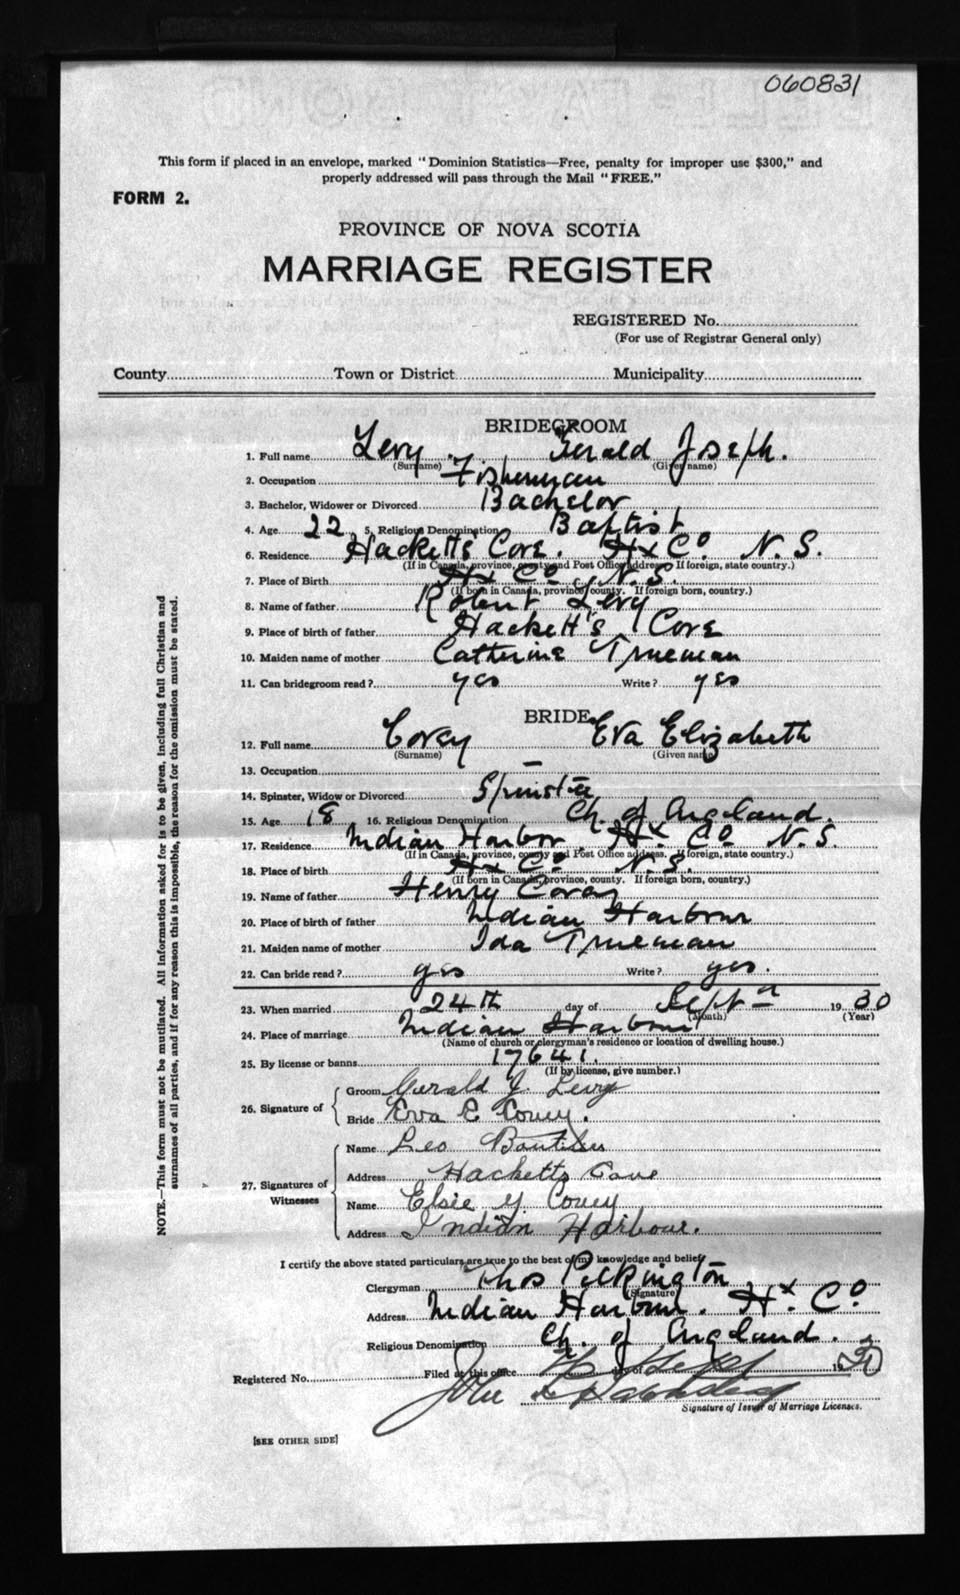 060831
This form if placed in an envelope, marked "Dominion Statistics—Free, penalty for improper use $300," and
properly addressed will pass through the Mail "FREE."
FORM 2.
PROVINCE OF NOVA SCOTIA
MARRIAGE REGISTER
REGISTERED No.
(For use of Registrar General only)
County Town or District Municipality
BRIDEGROOM
1. Full name Levy Gerald Joseph.
(Surname) (Given name)
2. Occupation Fisherman
3. Bachelor, Widower or Divorced Bachelor
4. Age 22 5. Religious Denomination Baptist
6. Residence Hacketts Cove. Hx Co. N. S.
(If in Canada, province, county and Post Office address. If foreign, state country.)
7. Place of Birth Hx Co. N. S.
(If born in Canada, province, county. If foreign born, country.)
8. Name of father Robert Levy
9. Place of birth of father Hackett's Cove
10. Maiden name of mother Catherine Trueman
11. Can bridegroom read? yes Write? yes
BRIDE
12. Full name Covey Eva Elizabeth
(Surname) (Given name)
13. Occupation —
14. Spinster, Widow or Divorced Spinster
15. Age 18 16. Religious Denomination Ch. of England.
17. Residence Indian Harbor Hx Co N. S.
(If in Canada, province, county and Post Office address. If foreign, state country.)
18. Place of birth Hx Co N. S.
(If born in Canada, province, county. If foreign born, country.)
19. Name of father Henry Covey
20. Place of birth of father Indian Harbour
21. Maiden name of mother Ida Trueman
22. Can bride read? yes Write? yes.
23. When married 24th day of Septr 1930
(Month) (Year)
24. Place of marriage Indian Harbour
(Name of church or clergyman's residence or location of dwelling house.)
25. By license or banns 17641.
(If by license, give number.)
26. Signature of
Groom Gerald J. Levy
Bride Eva E Covey.
27. Signatures of Witnesses
Name Leo Boutilier
Address Hacketts Cove
Name Elsie Y. Covey
Address Indian Harbour.
I certify the above stated particulars are true to the best of my knowledge and belief
Clergyman Thos Pilkington
(Signature)
Address Indian Harbour. Hx. Co
Religious Denomination Ch. of England.
Registered No. Filed at this office day of Sept 1930
John
Signature of Issuer of Marriage Licenses.
[SEE OTHER SIDE]
NOTE.—This form must not be mutilated. All information asked for is to be given, including full Christian and
surnames of all parties, and if for any reason this is impossible, the reason for the omission must be stated.